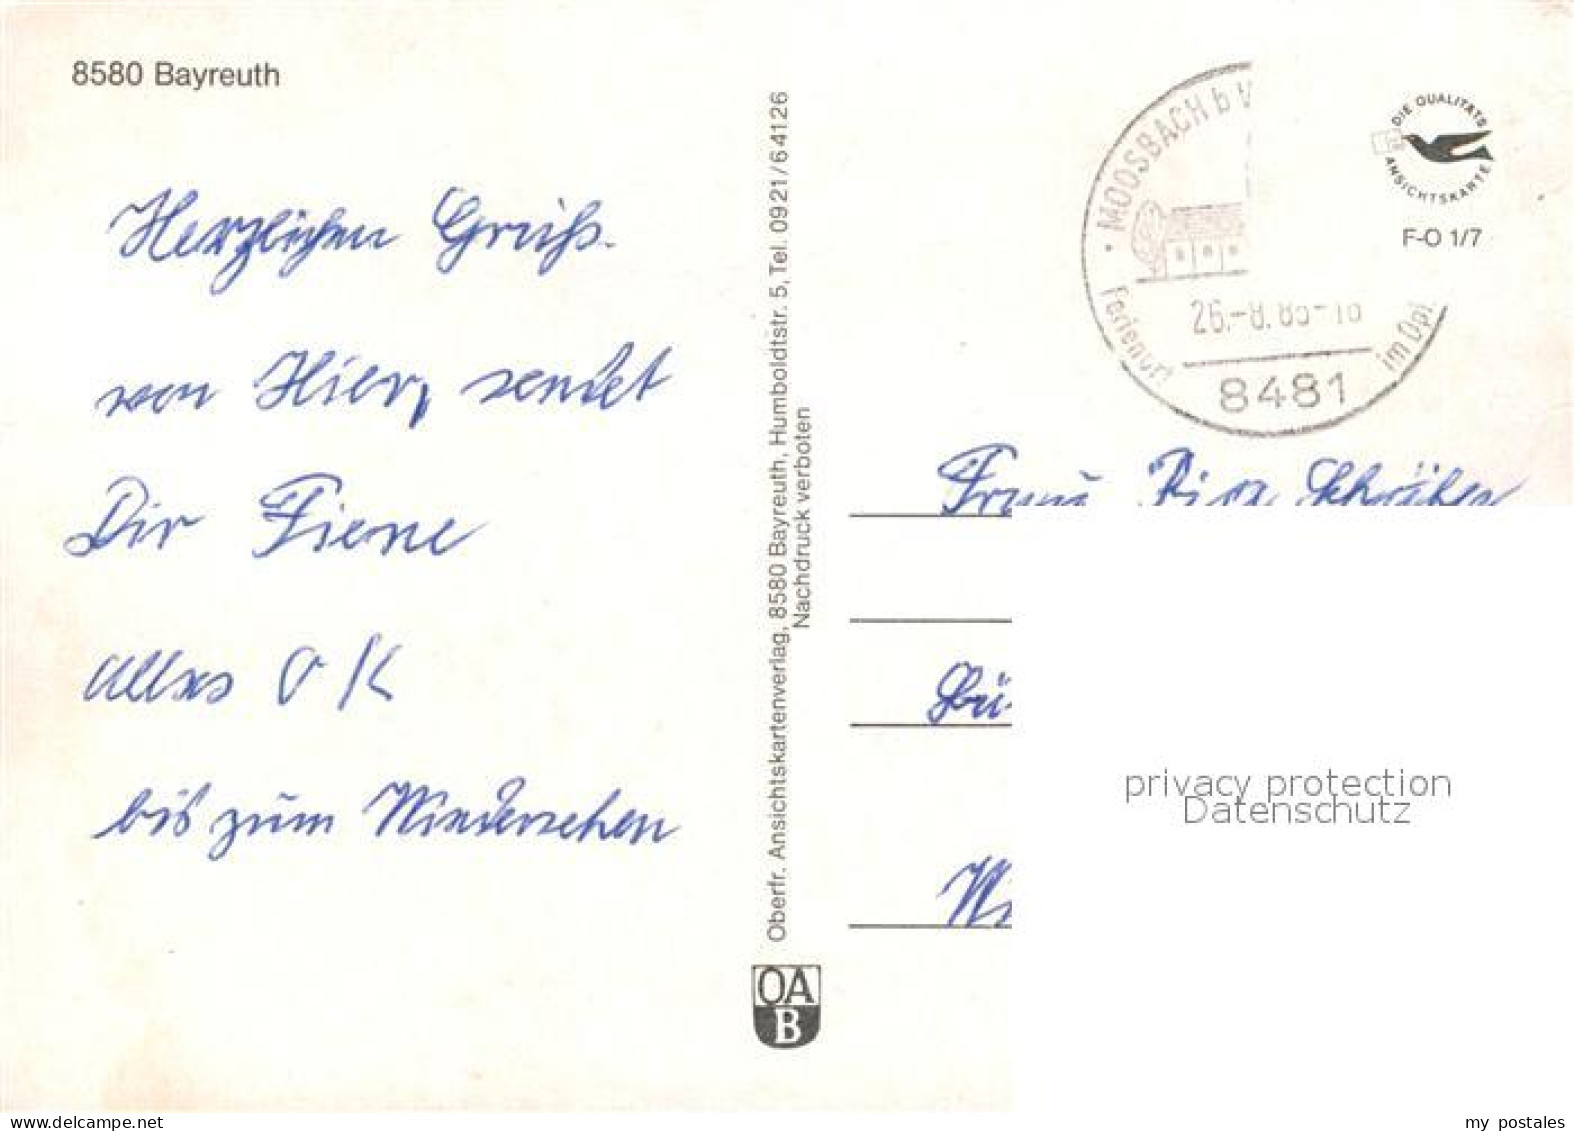 8580 Bayreuth
Herzlichen Gruß.
von Hier, sendet
Dir Fiene
Alles O K
bis zum Wiedersehen
Oberfr. Ansichtskartenverlag, 8580 Bayreuth, Humboldtstr. 5, Tel. 0921/64126
Nachdruck verboten
OA
B
MOOSBACH b V
Ferienort
im Opf.
26.-8.
8481
DIE QUALITÄTS
ANSICHTSKARTE
F-O 1/7
Frau
Bü
Wi
privacy protection
Datenschutz
www.delcampe.net
my_postales